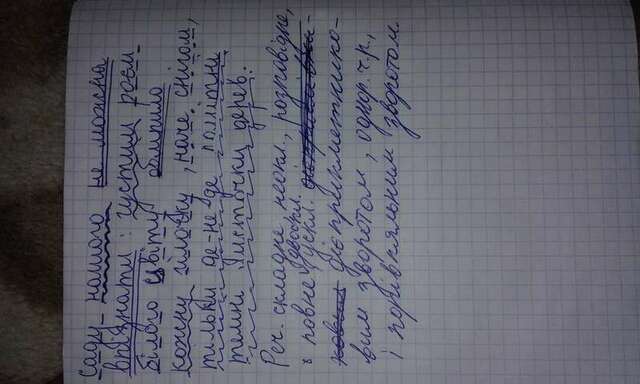 Саду нашого не можна
впізнати: густим роєм
білого цвіту обліпило
кожну гілочку, наче снігом,
тільки де-не-де помітні
темні листочки дерев.
Реч. складне неокл., розповідне,
повне двоскл. ускл.
дієприкметнико-
вим зворотом, однор. ч.р.,
і порівняльним зворотом